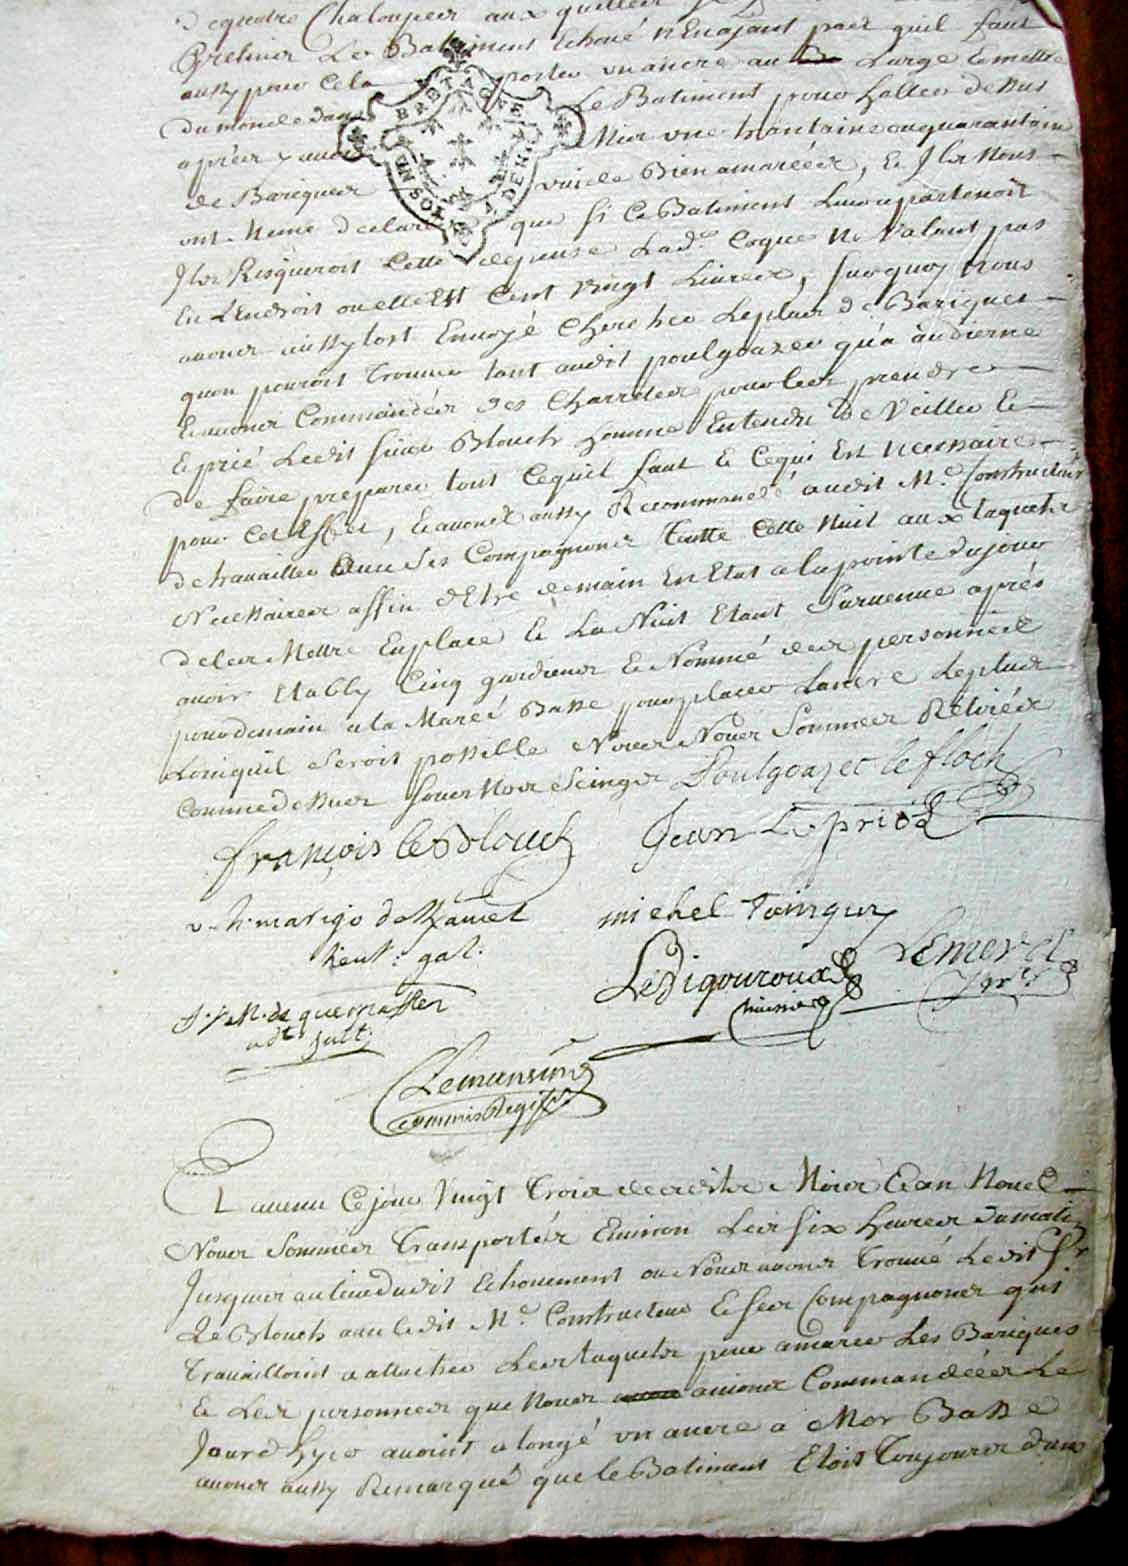 de quatre Chaloupes aux quilles
Bretiner Le Batiment Echoué n'En ayant pas quil faut
aussy pour Cela porter un ancre au Large Et mettre
du monde dans Le Batiment pour haller dessus
aprés y avoir Mis une trantaine ou quarantaine
de Bariques vuide Bien amaréés, Et Ils Nous
ont meme declaré que si Ce Batiment Leur apartenoit
Ils Risqueroit Cette depense Lad.e Coque Ne Valant pas
En L'Endroit ou elle Est Cent vingt Livres, surquoy nous
avons aussytost Envoyé Chercher Le plus de Bariques
quon pouroit trouver tant audit poulgoazec qu'a audierne
Et avons Commandés des Charretes pour les prendre
Et prié Ledit sieur Blouch homme Entendu de Veiller Et
de faire preparer tout Cequil faut Et Cequi Est necessaire
pour Cet Effet, Et avons aussy Recommandé audit M.e Constructeur
de travailler avec Ses Compagnons toutte Cette Nuit aux taquets
Necessaires affin d'Etre demain En Etat a la pointe du jour
de les Mettre En place Et La Nuit Etant Survenue aprés
avoir Etably Cinq gardiens Et Nommé des personnes
pour demain a la Mareé Basse pour placer L'ancre Le plus
Loin quil Seroit possible Nous Nous Sommes Retirés
Comme dessus sous Nos Seings Poulgoazec le floch
françois le Blouch Jean Le priol
v. h. marigo de
Lieut. gal.
michel Tainguy
Le Digouroux
huissier
Lemerel
J. J. M. de quernaflen
adt
Lemansin
Commis Regist.
Et avenu Ce jour Vingt Trois desdits Mois Et an Nous
Nous Sommes Transportés Environ Les six heures du matin
Jusques au lieu dudit Echouement ou Nous avons Trouvé Ledit Sr
Le Blouch avec Ledit M.e Constructeur Et ses Compagnons qui
Travailloint a attacher Les taquets pour amarer Les Bariques
Et Les personnes que Nous avions Commandées Le
Jour d'hyer avoint alongé un ancre a Mer Basse
avons aussy Remarqué que le Batiment Etoit Toujours dans
BRETAGNE